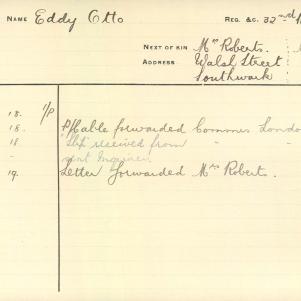 NAME Eddy Otto REG. &C. 32nd
NEXT OF KIN Mrs Roberts.
ADDRESS Walsh Street
Southwark
18. 1/P
18. Cable forwarded Commr London
18 "Slip" received from " "
19. Letter forwarded Mrs Roberts.